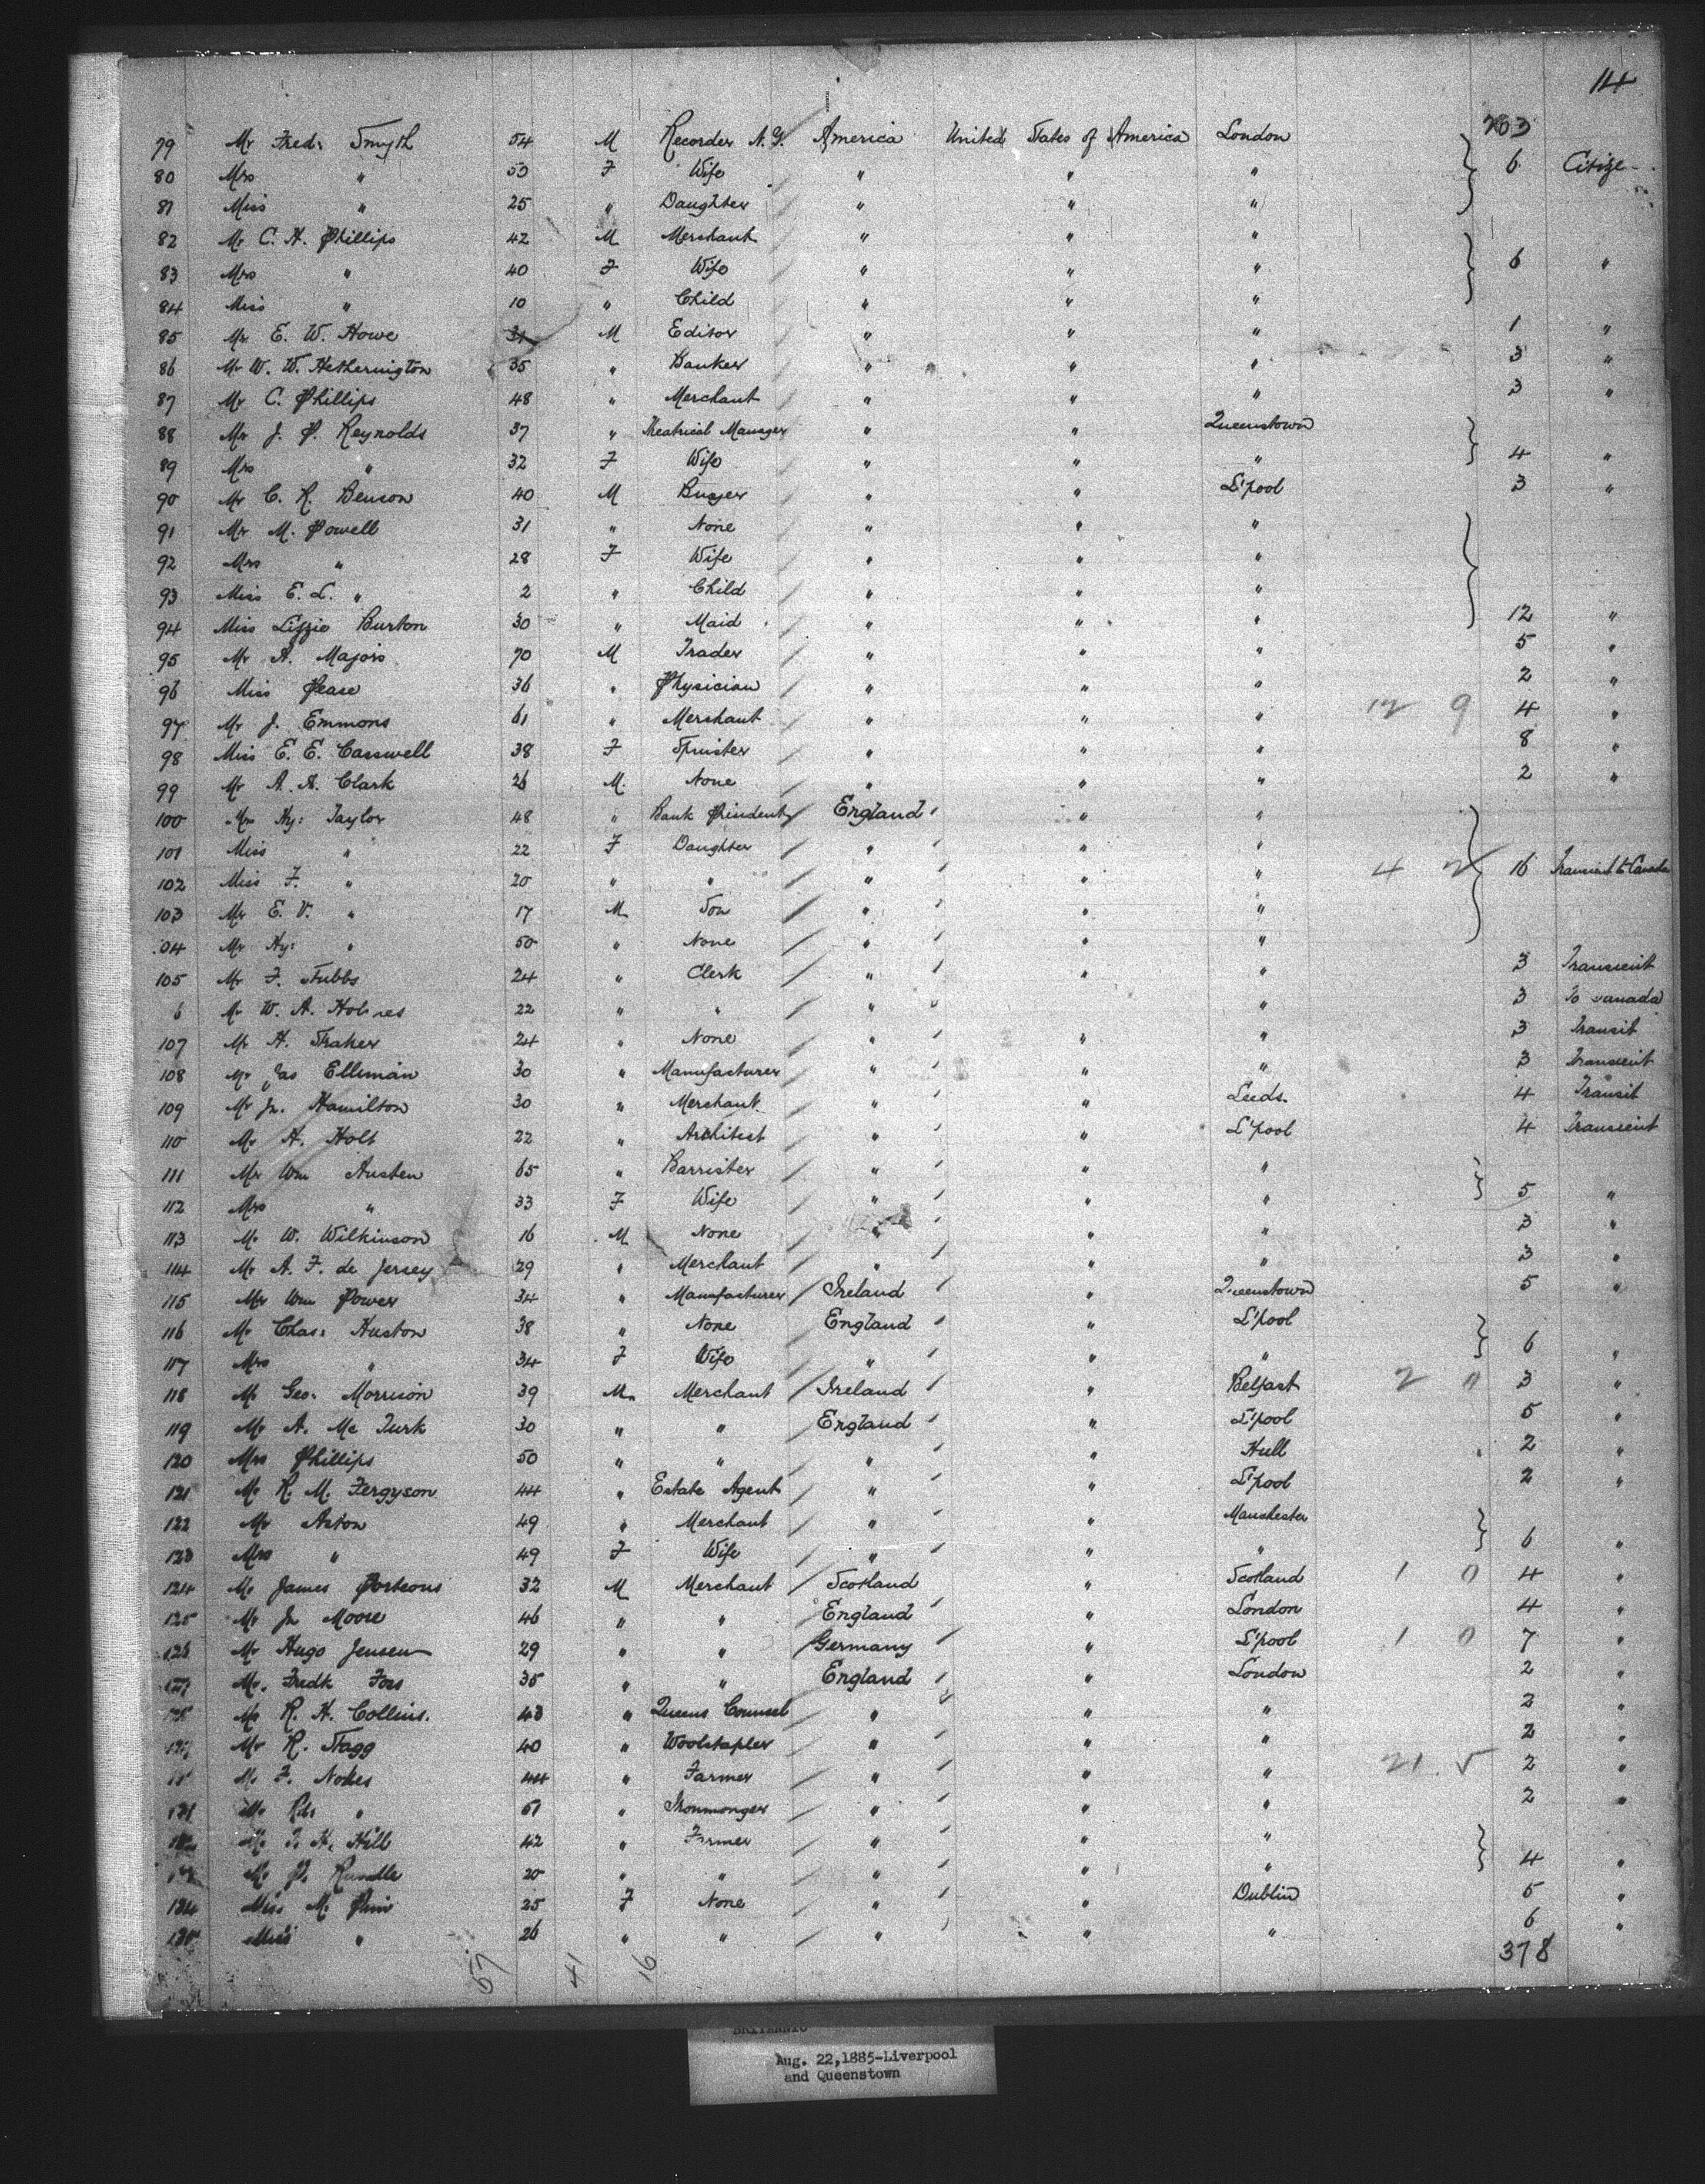 114
203
79 Mr Fred: Smyth 54 M Recorder N.Y. America United States of America London
80 Mrs " 50 F Wife " " " 6 Citize
81 Miss " 25 " Daughter " " "
82 Mr C. H. Phillips 42 M Merchant " " "
83 Mrs " 40 F Wife " " " 6 "
84 Miss " 10 " Child " " "
85 Mr E. W. Howe 31 M Editor " " " 1 "
86 Mr W. W. Hetherington 35 " Banker " " " 3 "
87 Mr C. Phillips 48 " Merchant " " " 3 "
88 Mr J. P. Reynolds 37 " Theatrical Manager " " Queenstown
89 Mrs " 32 F Wife " " " 4 "
90 Mr C. R. Benson 40 M Buyer " " L'pool 3 "
91 Mr M. Powell 31 " None " " "
92 Mrs " 28 F Wife " " "
93 Miss E. L. " 2 " Child " " "
94 Miss Lizzie Burton 30 " Maid " " " 12 "
95 Mr A. Majors 70 M Trader " " " 5 "
96 Miss Pease 36 " Physician " " " 2 "
97 Mr J. Emmons 61 " Merchant " " " 12 9 4 "
98 Miss E. E. Casswell 38 F Spinster " " " 8 "
99 Mr A. A. Clark 26 M. None " " " 2 "
100 Mr Hy: Taylor 48 " Bank Presdent England " "
101 Miss " 22 F Daughter " " "
102 Miss F. " 20 " " " " " 4 2 16 Transient to Canada
103 Mr E. V. " 17 M Son " " "
104 Mr Hy: " 50 " None " " "
105 Mr F. Stubbs 24 " Clerk " " " 3 Transient
6 Mr W. A. Holmes 22 " " " " " 3 To Canada
107 Mr H. Fraker 24 " None " " " 3 Transit
108 Mr Jas Elliman 30 " Manufacturer " " " 3 Transient
109 Mr Jn. Hamilton 30 " Merchant " " Leeds 4 Transit
110 Mr H. Holt 22 " Architect " " L'pool 4 Transient
111 Mr Wm Austen 65 " Barrister " " "
112 Mrs " 33 F Wife " " " 5 "
113 Mr W. Wilkinson 16 M None " " " 3 "
114 Mr A. F. de Jersey 29 " Merchant " " " 3 "
115 Mr Wm Power 34 " Manufacturer Ireland " Queenstown 5 "
116 Mr Chas: Huston 38 " None England " L'pool
117 Mrs " 34 F Wife " " " 6 "
118 Mr Geo: Morrison 39 M Merchant Ireland " Belfast 2 0 3 "
119 Mr A. Mc Turk 30 " " England " L'pool 5 "
120 Mrs Phillips 50 " " " " Hull 2 "
121 Mr R. M. Fergyson 44 " Estate Agent " " L'pool 2 "
122 Mr Aston 49 " Merchant " " Manchester
123 Mrs " 49 F Wife " " " 6 "
124 Mr James Porteous 32 M Merchant Scotland " Scotland 1 0 4 "
125 Mr Jn Moore 46 " " England " London 4 "
126 Mr Hugo Jensen 29 " " Germany " L'pool 1 0 7 "
127 Mr. Fredk Foss 35 " " England " London 2 "
Mr R. H. Collins. 43 " Queens Counsel " " " 2 "
Mr R. Stagg 40 " Woolstapler " " " 2 "
Mr F. Nokes 44 " Farmer " " " 21 5 2 "
131 Mr Rd: " 51 " Ironmonger " " " 2 "
Mr T. H. Hill 42 " Farmer " " "
Mr Rundle 20 " " " " " 4 "
134 Miss M. Pim 25 F None " " Dublin 5 "
135 Miss " 26 " " " " " 6 "
378
57 41 16
BRITANNIC
Aug. 22,1885-Liverpool
and Queenstown